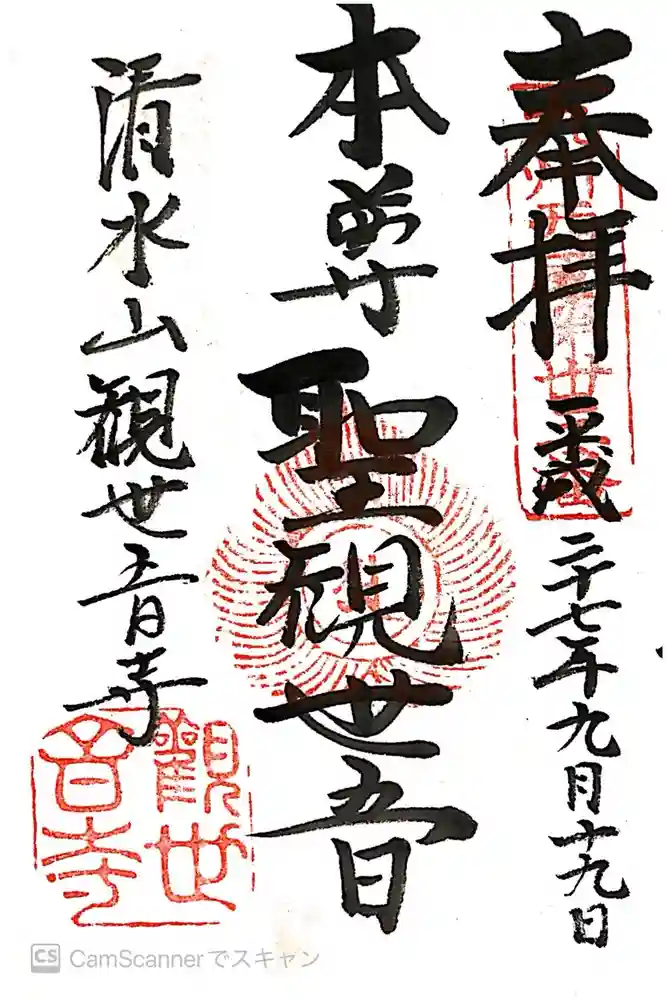 奉拝 平成二十七年九月十九日
本尊 聖観世音
清水山観世音寺
觀世音寺
CS CamScannerでスキャン